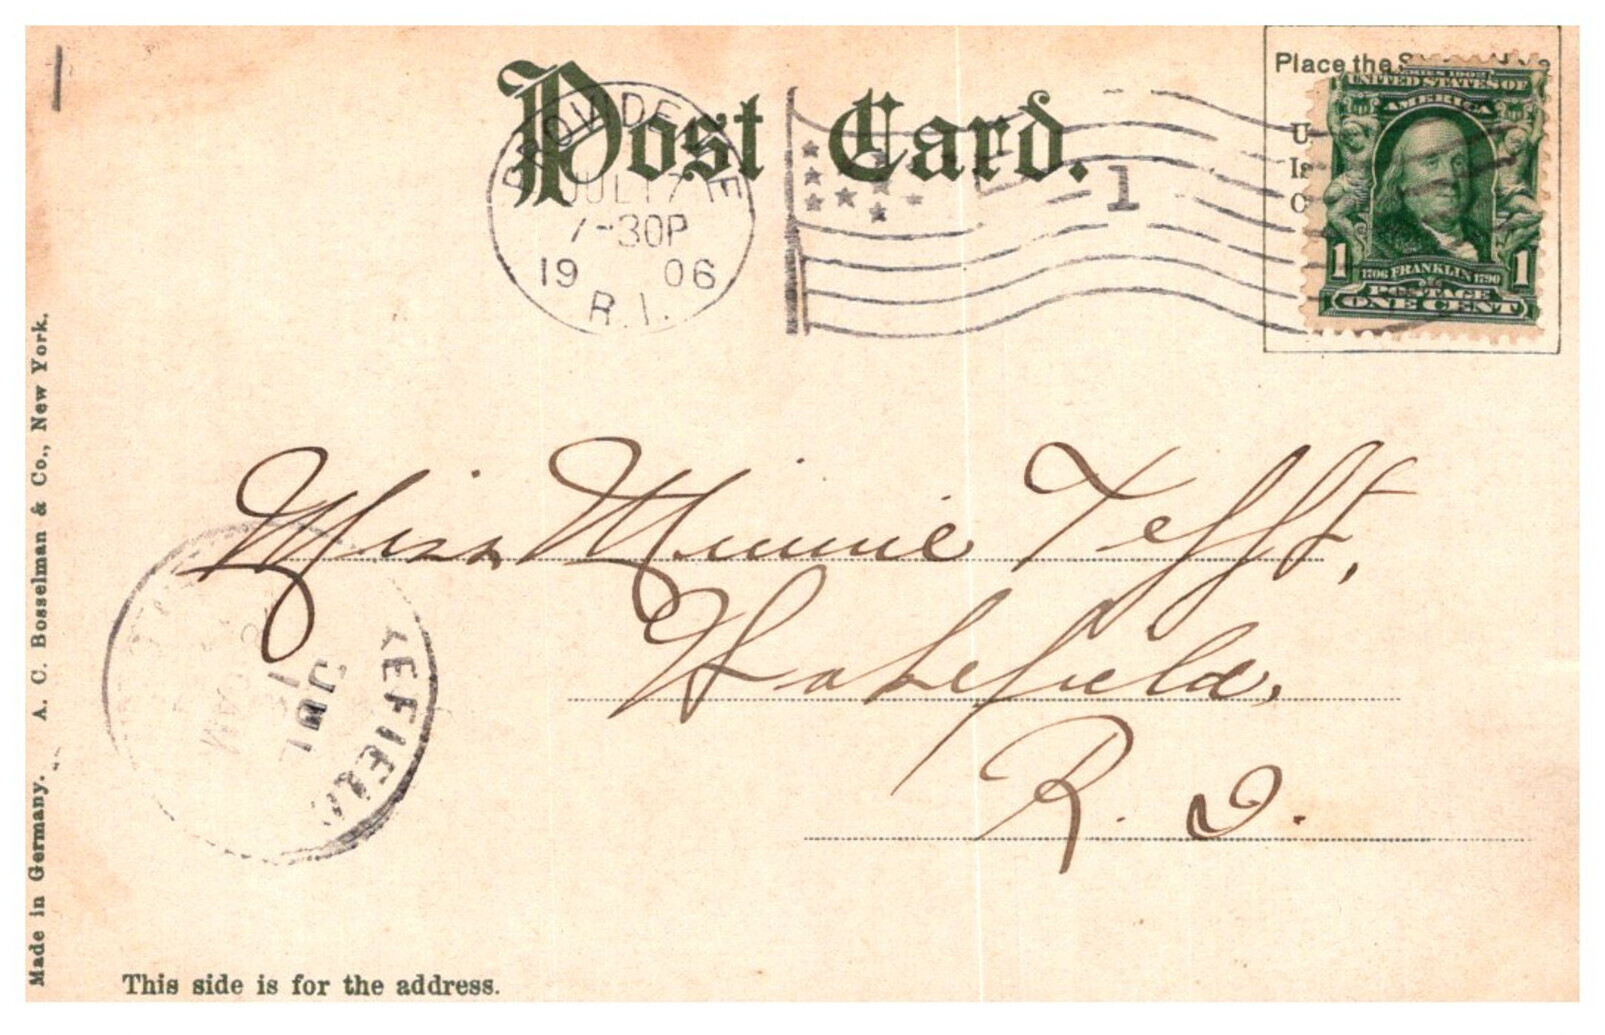 Post Card.
PROVIDENCE
JUL 17
7-30P
19 06
R.I.
1
Place the
SERIES 1902
UNITED STATES OF
AMERICA
1 1706 FRANKLIN 1790 1
POSTAGE
ONE CENT
Miss Minnie Tefft,
Wakefield,
R. I.
KEFIELD
JUL
AM
Made in Germany. A. C. Bosselman & Co., New York.
This side is for the address.